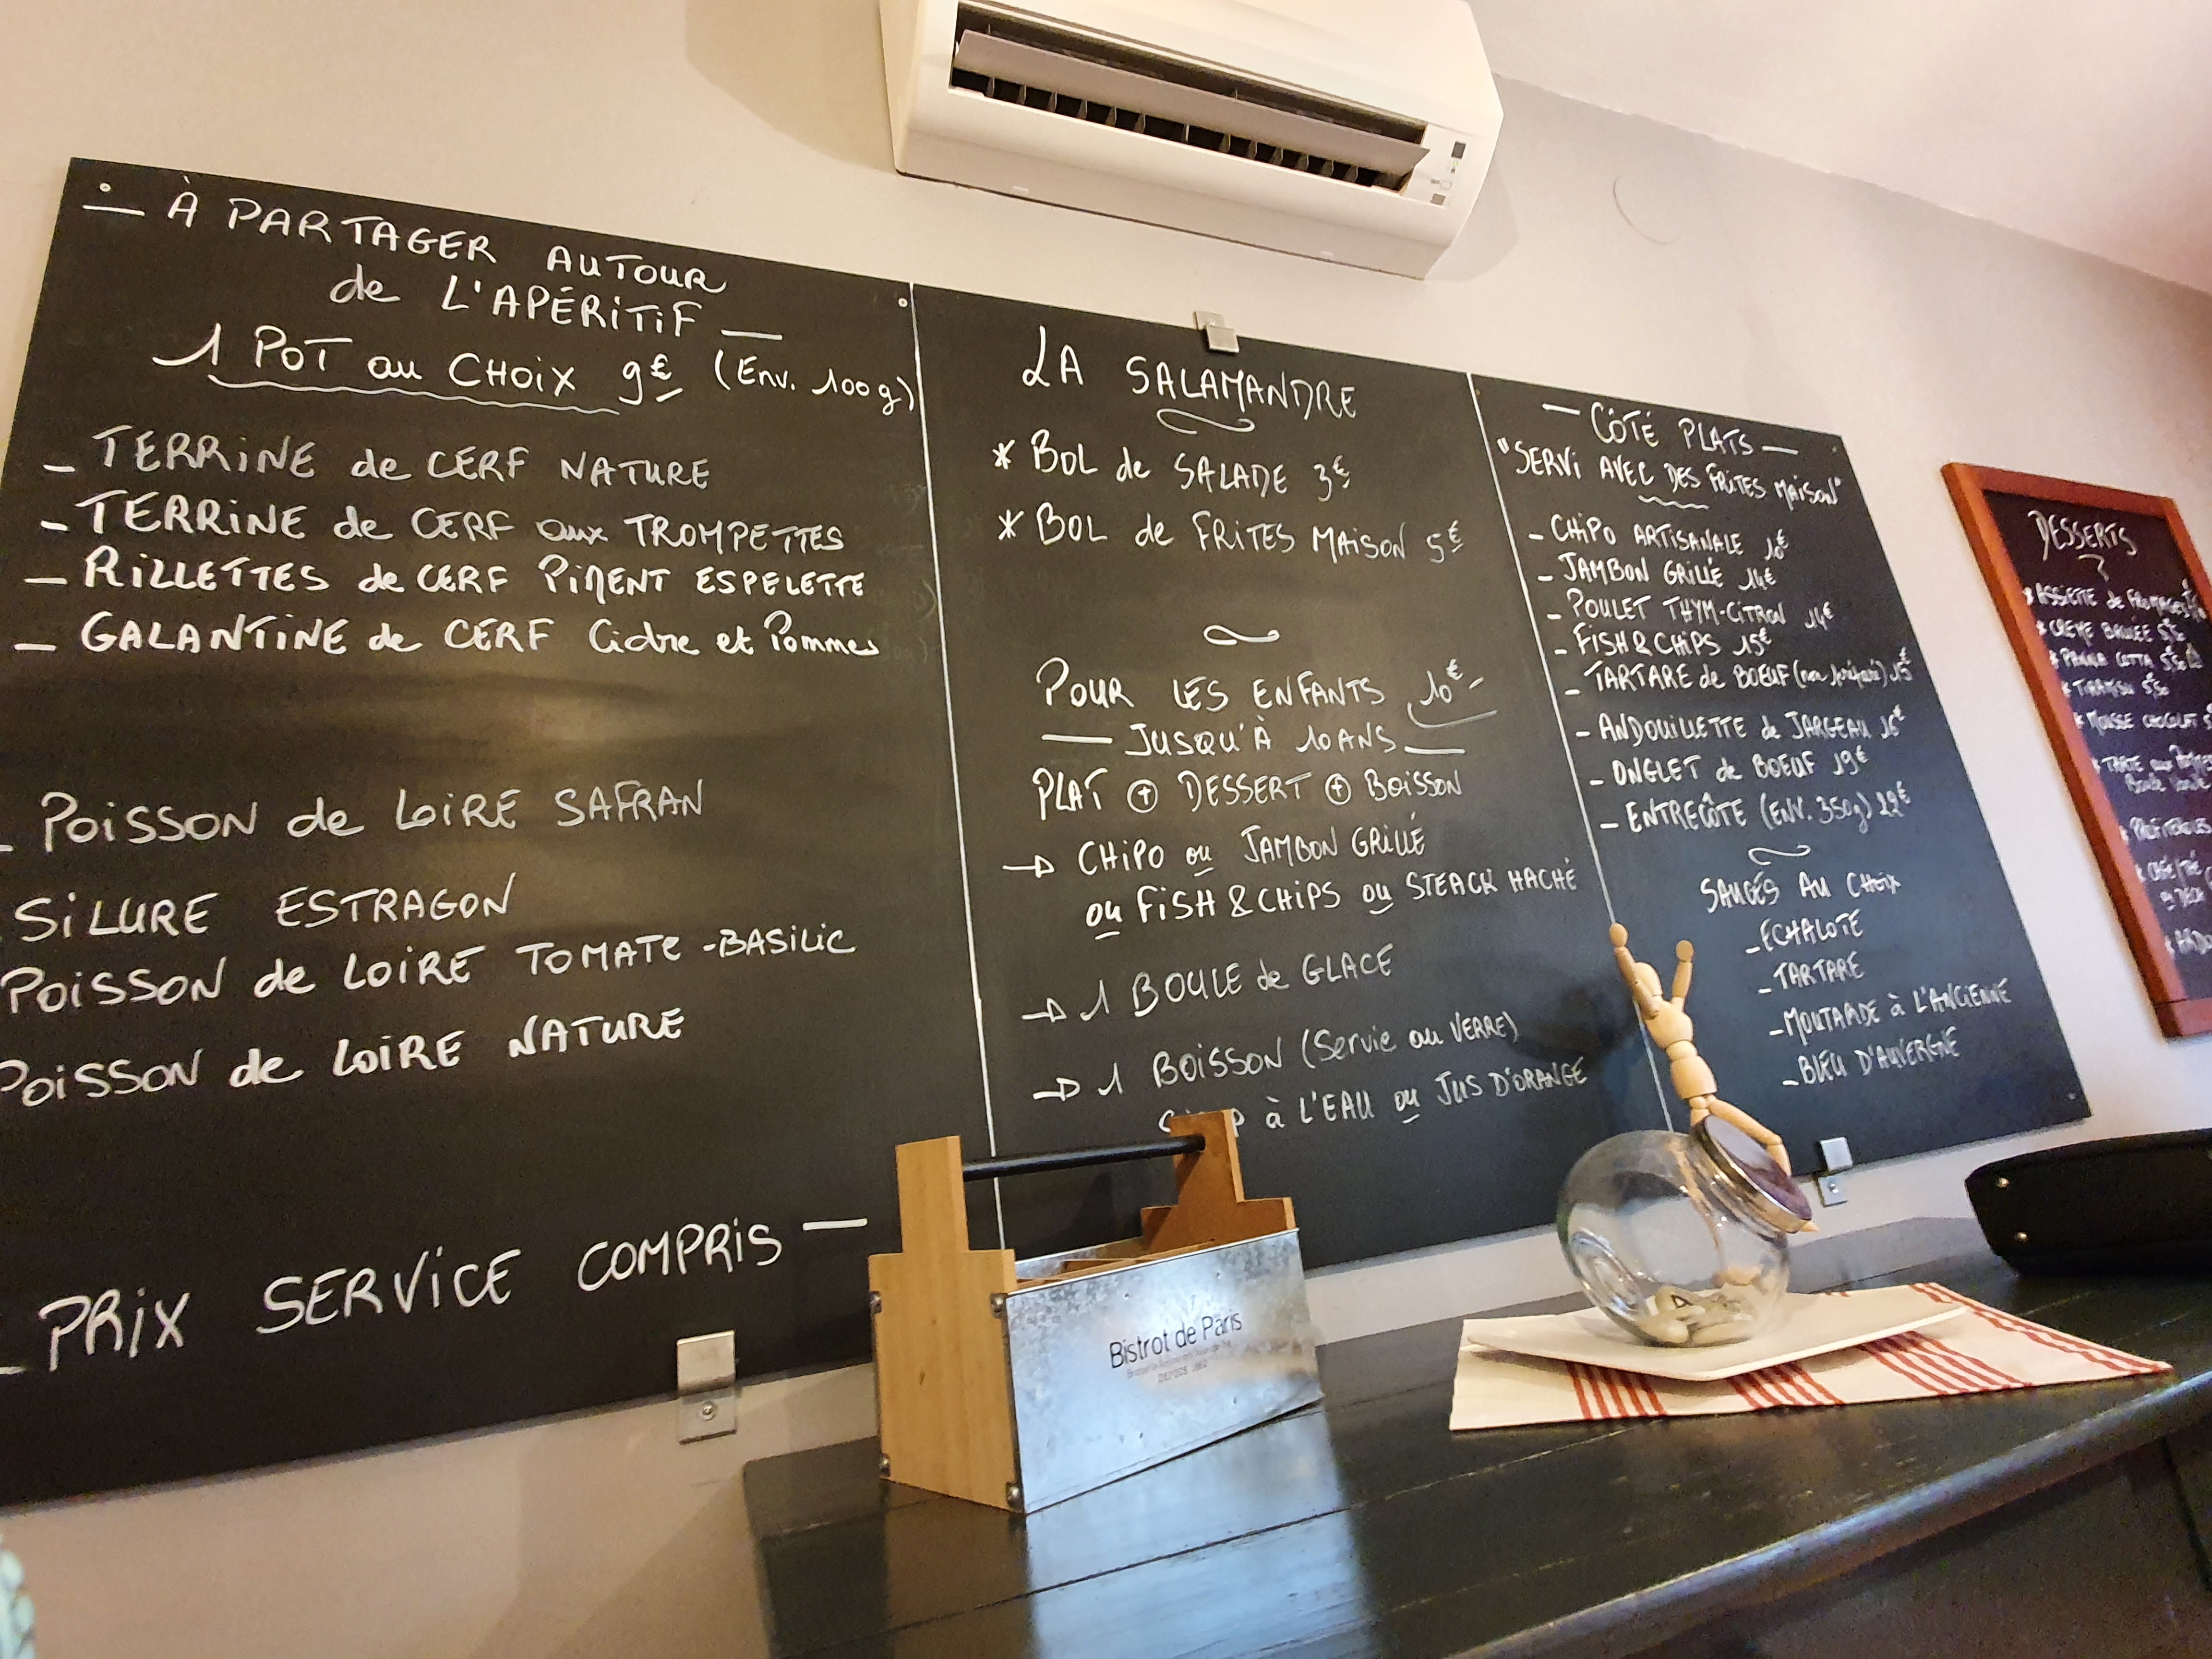 — À PARTAGER AUTOUR
de L'APÉRITIF —
1 POT au CHOIX 9€ (Env. 100g)
- TERRINE de CERF NATURE
- TERRINE de CERF aux TROMPETTES
- RILLETTES de CERF PIMENT ESPELETTE
- GALANTINE de CERF Cidre et Pommes
- POISSON de LOIRE SAFRAN
SILURE ESTRAGON
POISSON de LOIRE TOMATE-BASILIC
POISSON de LOIRE NATURE
- PRIX SERVICE COMPRIS —
LA SALAMANDRE
* BOL de SALADE 3€
* BOL de FRITES MAISON 5€
POUR LES ENFANTS 10€
— JUSQU'À 10 ANS —
PLAT + DESSERT + BOISSON
→ CHIPO ou JAMBON GRILLÉ
ou FISH & CHIPS ou STEACK HACHÉ
→ 1 BOULE de GLACE
→ 1 BOISSON (Servie au VERRE)
à L'EAU ou JUS D'ORANGE
— CÔTÉ PLATS —
"SERVI AVEC DES FRITES MAISON"
- CHIPO ARTISANALE
- JAMBON GRILLÉ 14€
- POULET THYM-CITRON 14€
- FISH & CHIPS 15€
- TARTARE de BOEUF (non préparé) 15€
- ANDOUILLETTE de JARGEAU 16€
- ONGLET de BOEUF 19€
- ENTRECÔTE (ENV. 350g) 22€
SAUCES AU CHOIX
- ECHALOTE
- TARTARE
- MOUTARDE à L'ANCIENNE
- BLEU D'AUVERGNE
DESSERTS
* ASSIETTE de FROMAGES
* CREME BRULEE
* PANNA COTTA
* TIRAMISU
* MOUSSE CHOCOLAT
* TARTE aux
Bistrot de Paris
DEPUIS